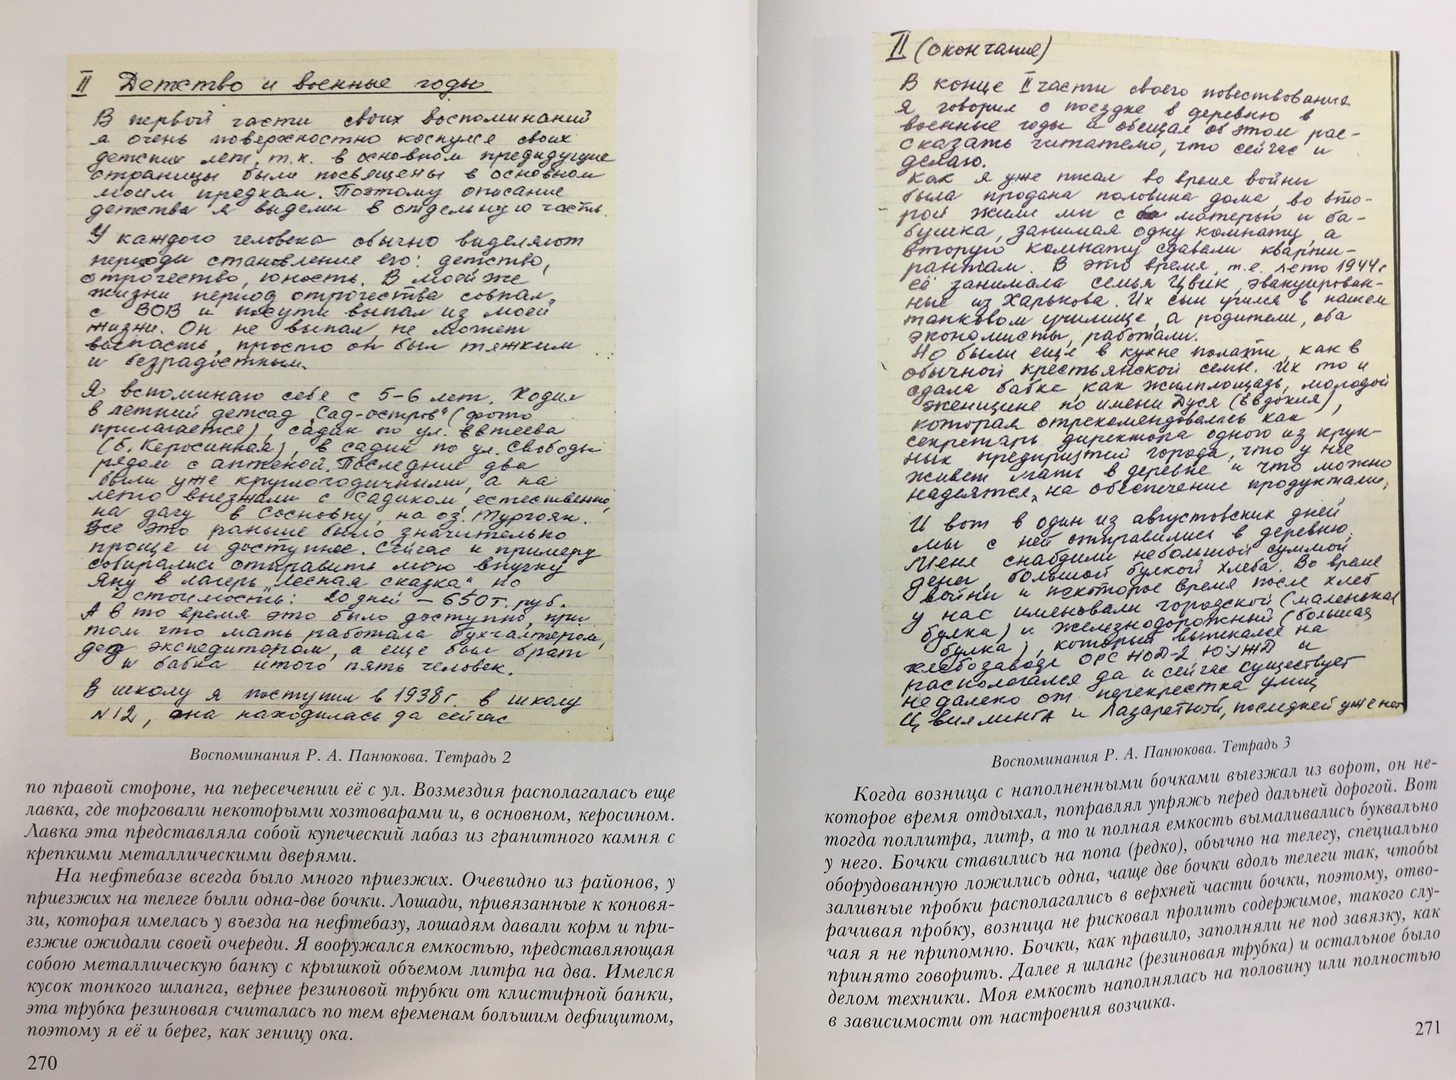 II Детство и военные годы.
В первой части своих воспоминаний
я очень поверхностно коснулся своих
детских лет, т.к. в основном предидущие
страницы были посвящены в основном
моим предкам. Поэтому описание
детства я выделил в отдельную часть.
У каждого человека обычно выделяют
периоды становление его: детство,
отрочество, юность. В моей же
жизни период отрочества совпал
с ВОВ и по сути выпал из моей
жизни. Он не выпал, не может
выпасть, просто он был тяжким
и безрадостным.
Я вспоминаю себя с 5-6 лет. Ходил
в летний детсад "Сад-остров" (фото
прилагается), садик по ул. Евтеева
(б. Керосинная), в садик по ул. Свободы
рядом с аптекой. Последние два
были уже круглогодичными, а на
лето выезжали с садиком, естественно,
на дачу в Сосновку, на оз. Тургояк.
Все это раньше было значительно
проще и доступнее. Сейчас к примеру
собирались отправить мою внучку
Яну в лагерь "Лесная сказка" по
стоимость: 20 дней – 650 т. руб.
А в то время это было доступно, при
том что мать работала бухгалтером,
дед экспедитором, а еще был брат
и бабка итого пять человек.
В школу я поступил в 1938 г. в школу
№12, она находилась да сейчас
Воспоминания Р. А. Панюкова. Тетрадь 2
по правой стороне, на пересечении её с ул. Возмездия располагалась еще
лавка, где торговали некоторыми хозтоварами и, в основном, керосином.
Лавка эта представляла собой купеческий лабаз из гранитного камня с
крепкими металлическими дверями.
На нефтебазе всегда было много приезжих. Очевидно из районов, у
приезжих на телеге были одна-две бочки. Лошади, привязанные к коновя-
зи, которая имелась у въезда на нефтебазу, лошадям давали корм и при-
езжие ожидали своей очереди. Я вооружался емкостью, представляющая
собою металлическую банку с крышкой объемом литра на два. Имелся
кусок тонкого шланга, вернее резиновой трубки от клистирной банки,
эта трубка резиновая считалась по тем временам большим дефицитом,
поэтому я её и берег, как зеницу ока.
270
II (окончание)
В конце II части своего повествования
я говорил о поездке в деревню в
военные годы и обещал об этом рас-
сказать читателю, что сейчас и
делаю.
Как я уже писал во время войны
была продана половина дома, во вто-
рой жили мы с матерью и ба-
бушка, занимая одну комнату, а
вторую комнату сдавали кварти-
рантам. В это время, т.е. лето 1944 г
её занимала семья Цвик, эвакуирован-
ные из Харькова. Их сын учился в нашем
танковом училище, а родители, оба
экономисты, работали.
Но были еще в кухне полати, как в
обычной крестьянской семье. Их то и
сдала бабка как жилплощадь, молодой
женщине по имени Дуся (Евдокия),
которая отрекомендовалась как
секретарь директора одного из круп-
ных предприятий города, что у нее
живет мать в деревне и что можно
надеятся, на обеспечение продуктами.
И вот в один из августовских дней
мы с ней отправились в деревню.
Меня снабдили небольшой суммой
денег, большой булкой хлеба. Во время
войны и некоторое время после хлеб
у нас именовали городской (маленькая
булка) и железнодорожный (большая
булка), который выпекался на
хлебозаводе ОРС НОД-2 ЮУЖД и
располагался да и сейчас существует
недалеко от перекрестка улиц
Цвиллинга и Лазаретной, последней уже нет
Воспоминания Р. А. Панюкова. Тетрадь 3
Когда возница с наполненными бочками выезжал из ворот, он не-
которое время отдыхал, поправлял упряжь перед дальней дорогой. Вот
тогда поллитра, литр, а то и полная емкость вымаливались буквально
у него. Бочки ставились на попа (редко), обычно на телегу, специально
оборудованную ложились одна, чаще две бочки вдоль телеги так, чтобы
заливные пробки располагались в верхней части бочки, поэтому, отво-
рачивая пробку, возница не рисковал пролить содержимое, такого слу-
чая я не припомню. Бочки, как правило, заполняли не под завязку, как
принято говорить. Далее я шланг (резиновая трубка) и остальное было
делом техники. Моя емкость наполнялась на половину или полностью
в зависимости от настроения возчика.
271